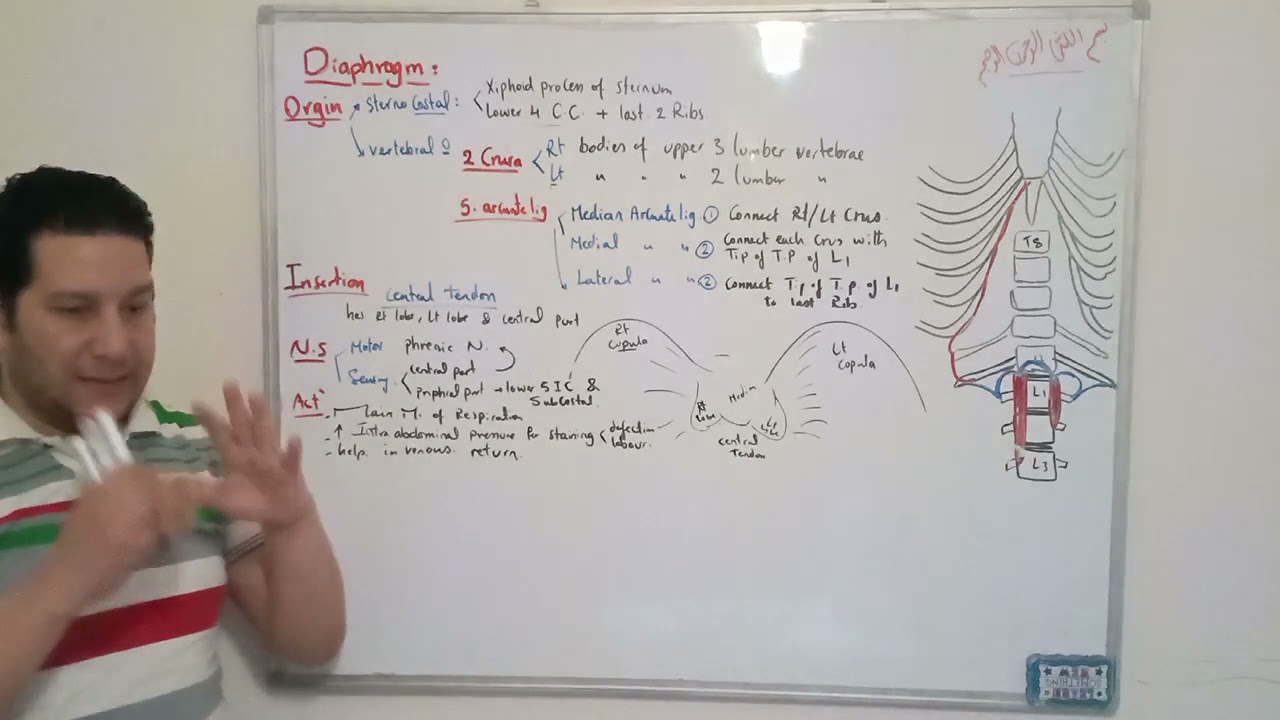 بسم الله الرحمن الرحيم
Diaphragm:
Orgin
sterno Costal:
Xiphoid process of sternum
Lower 4 C.C. + last 2 Ribs
vertebral
2 Crura
Rt bodies of upper 3 lumber vertebrae
Lt " " " 2 lumber "
5. arcuate lig
Median Arcuate lig. ① Connect Rt/Lt Crus.
Medial " " ② Connect each Crus with
Tip of T.P of L1
Lateral " " ② Connect Tip of T.P. of L1
to last Ribs.
Insertion
central Tendon
has Rt lobe, Lt lobe & central part
N.S
Motor phrenic N.
Sensory
central part
Priphral part → lower 5 IC &
Subcostal.
Act
- Main M. of Respiration
- ↑ Intra abdominal pressure for staining
defection
labour.
- help in venous return.
Rt
Copula
Lt
Copula
Median
central
Tendon
T8
L1
L3
SOMETHING